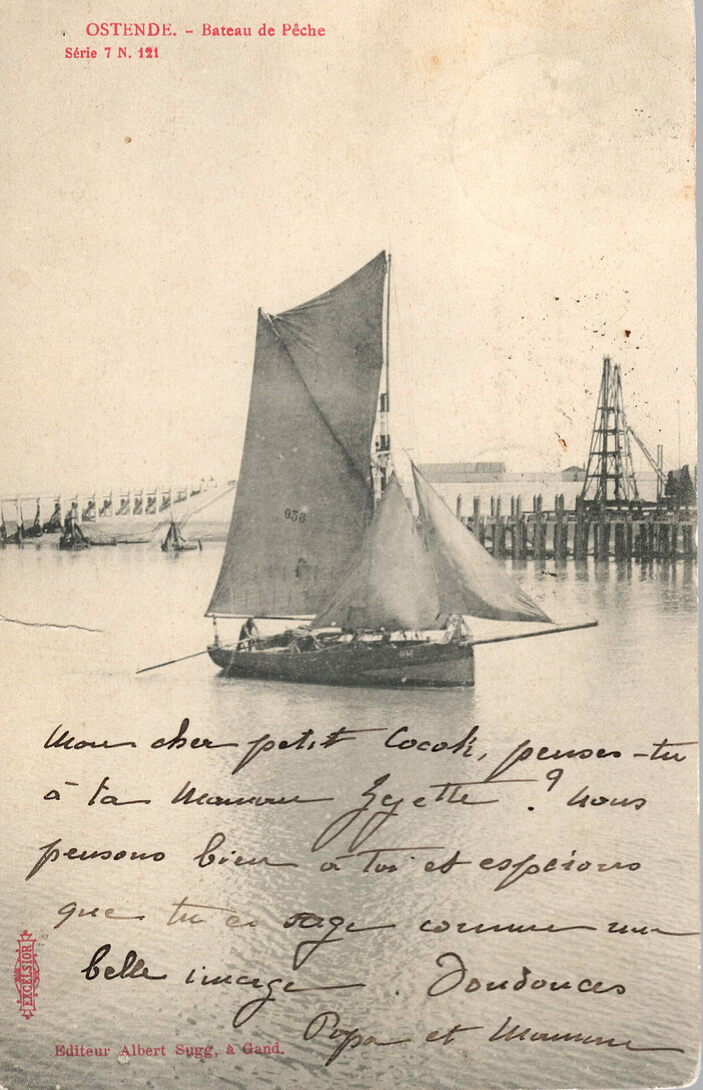 OSTENDE. - Bateau de Pêche
Série 7 N. 121
Mon cher petit Cocok, penses-tu
à ta Maman Zezette ? Nous
pensons bien à toi et espérons
que tu es sage comme une
belle image. Doudouces
Papa et Maman
EXCELSIOR
Editeur Albert Sugg, à Gand.